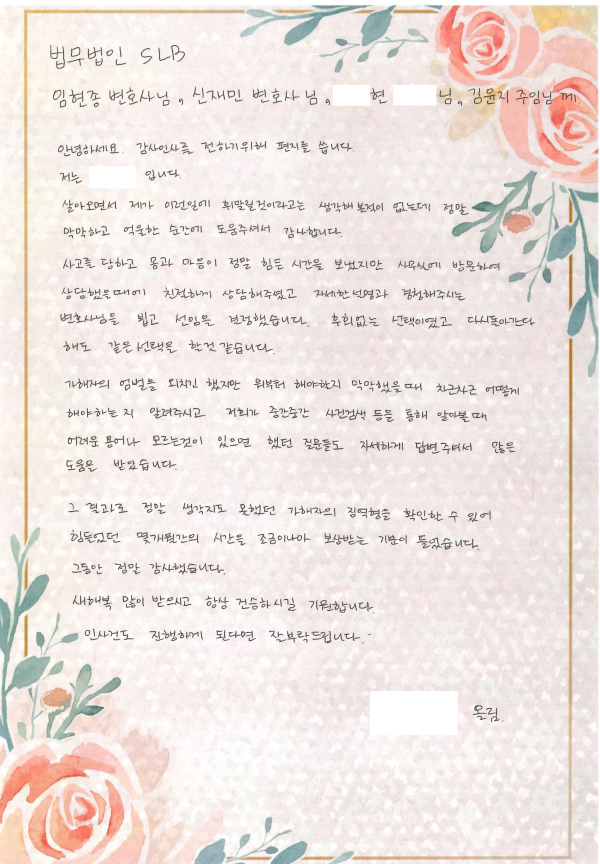 법무법인 SLB
임현종 변호사님, 신재민 변호사님, 현 님, 김윤지 주임님께.
안녕하세요. 감사인사를 전하기위해 편지를 씁니다.
저는 입니다.
살아오면서 제가 이런일에 휘말릴것이라고는 생각해본적이 없는데 정말
막막하고 억울한 순간에 도움주셔서 감사합니다.
사고를 당하고 몸과 마음이 정말 힘든 시간을 보냈지만 사무실에 방문하여
상담했을때에 친절하게 상담해주셨고 자세한설명과 경청해주시는
변호사님을 뵙고 선임을 결정했습니다. 후회없는 선택이였고 다시돌아간다
해도 같은선택을 할것 같습니다.
가해자의 엄벌을 외치긴 했지만 뭐부터 해야할지 막막했을때 차근차근 어떻게
해야하는지 알려주시고 저희가 중간중간 사건검색 등을 통해 알아볼때
어려운 용어나 모르는것이 있으면 했던 질문들도 자세하게 답변주셔서 많은
도움을 받았습니다.
그 결과로 정말 생각지도 못했던 가해자의 징역형을 확인할 수 있어
힘들었던 몇개월간의 시간을 조금이나마 보상받는 기분이 들었습니다.
그동안 정말 감사했습니다.
새해복 많이 받으시고 항상 건승하시길 기원합니다.
민사건도 진행하게 된다면 잘부탁드립니다.-
올림.